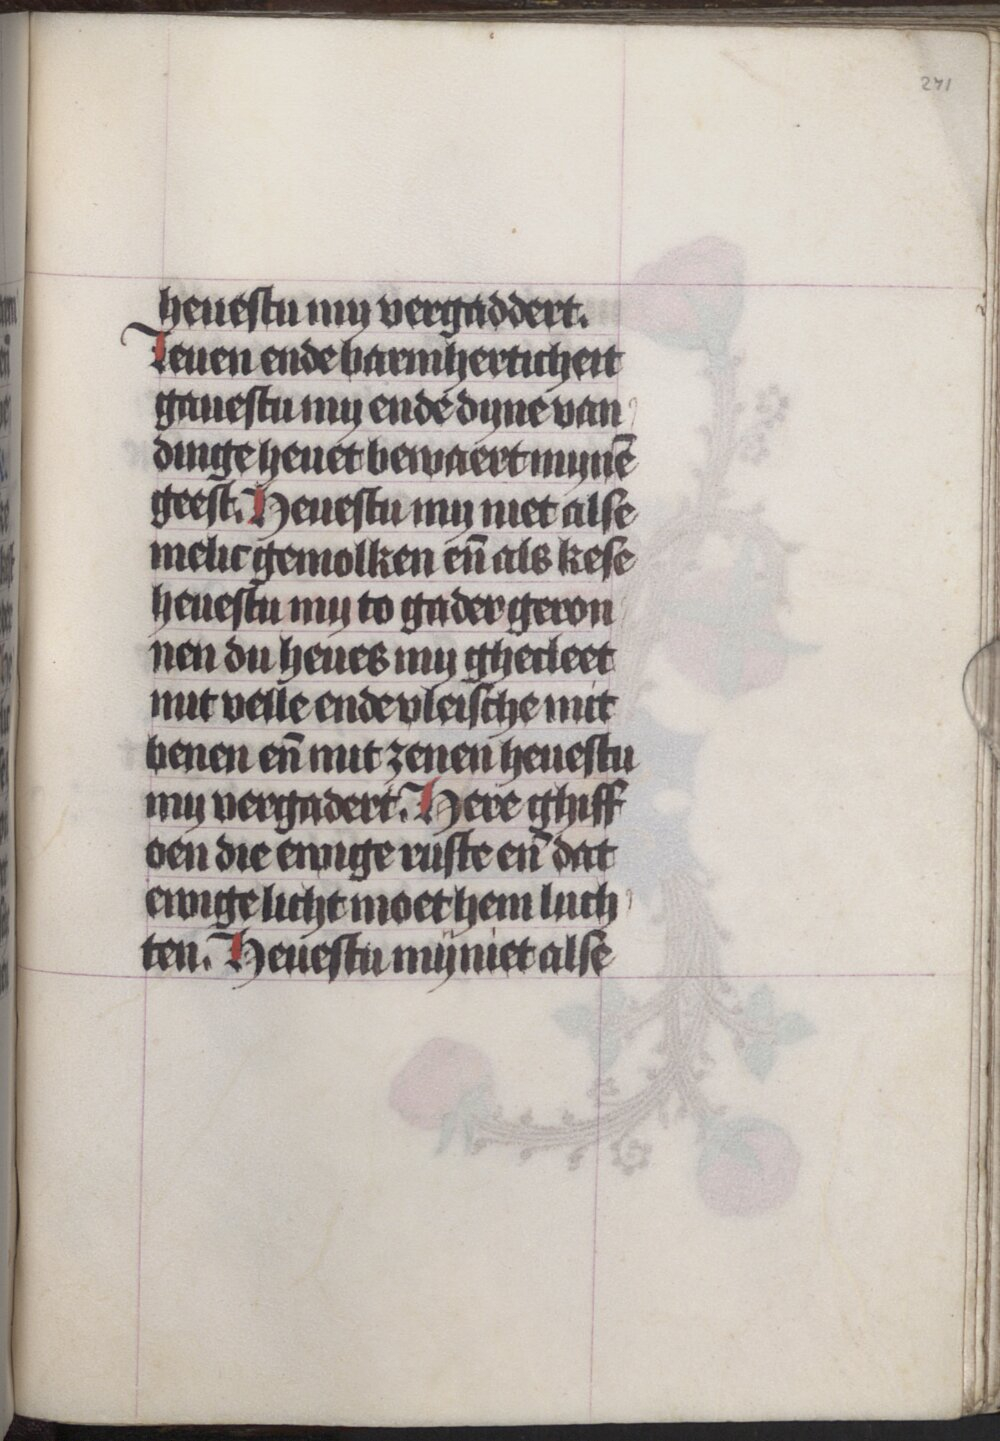 271
heuestu my vergaddert.
Leuen ende barmherticheit
gauestu my ende dyne van
dinge heuet bewaert mynē
geest. Heuestu my niet alse
melic gemolken en̄ als kese
heuestu my to gader geron
nen du heues my ghecleet
mit velle ende vleische mit
benen en̄ mit zenen heuestu
my vergadert. Here ghiff
oen die ewige ruste en̄ dat
ewige licht moet hem luch
ten. Heuestu my niet alse